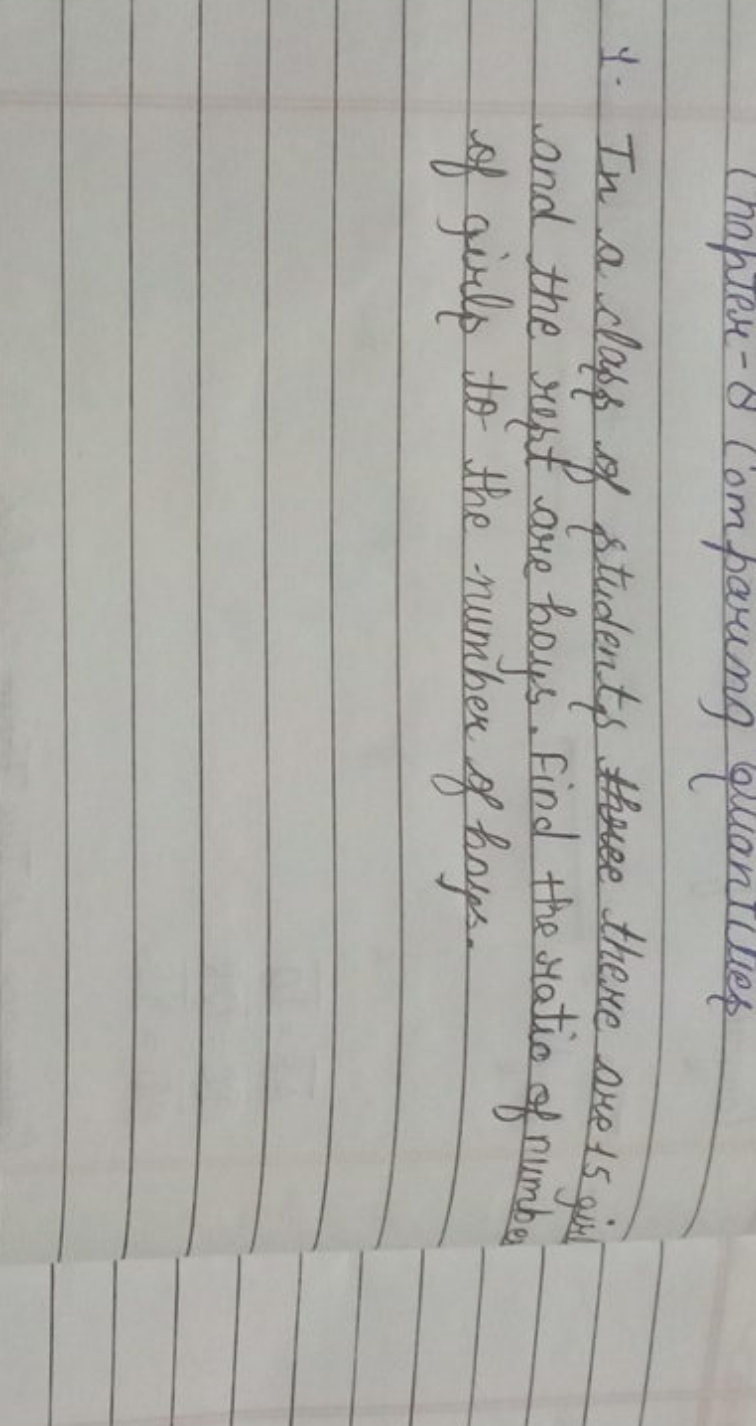 Chapter-8 Comparing quantities
1. In a class of students three there are 15 girl
and the rest are boys. Find the ratio of number
of girls to the number of boys.